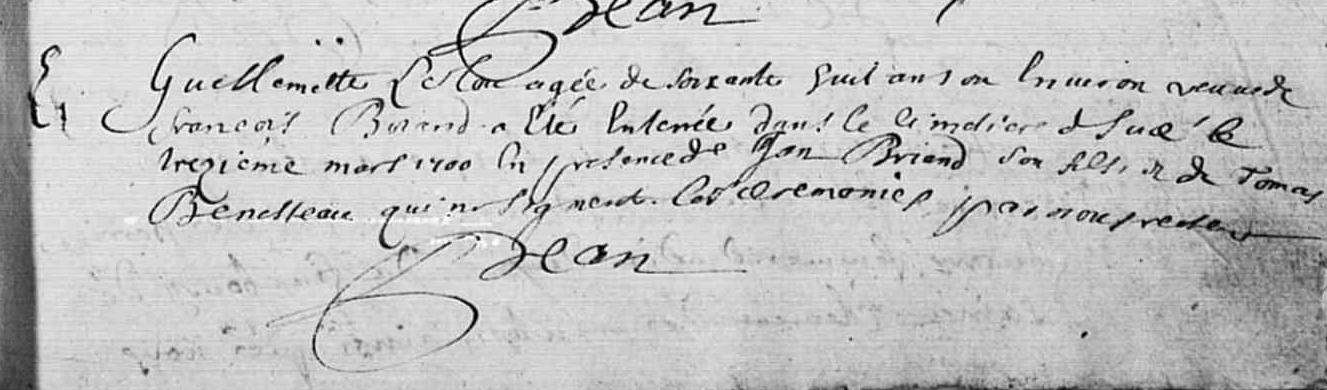 Jean
Guillemette agée de soixante huit ans ou Environ veuve de
françois Briand a Eté Enterrée dans le Cimetiere le
treziéme mars 1700 En presence de Jan Briand son fils et de Tomas
Benesteau qui ne signent. les ceremonies par nous recteur
Jean